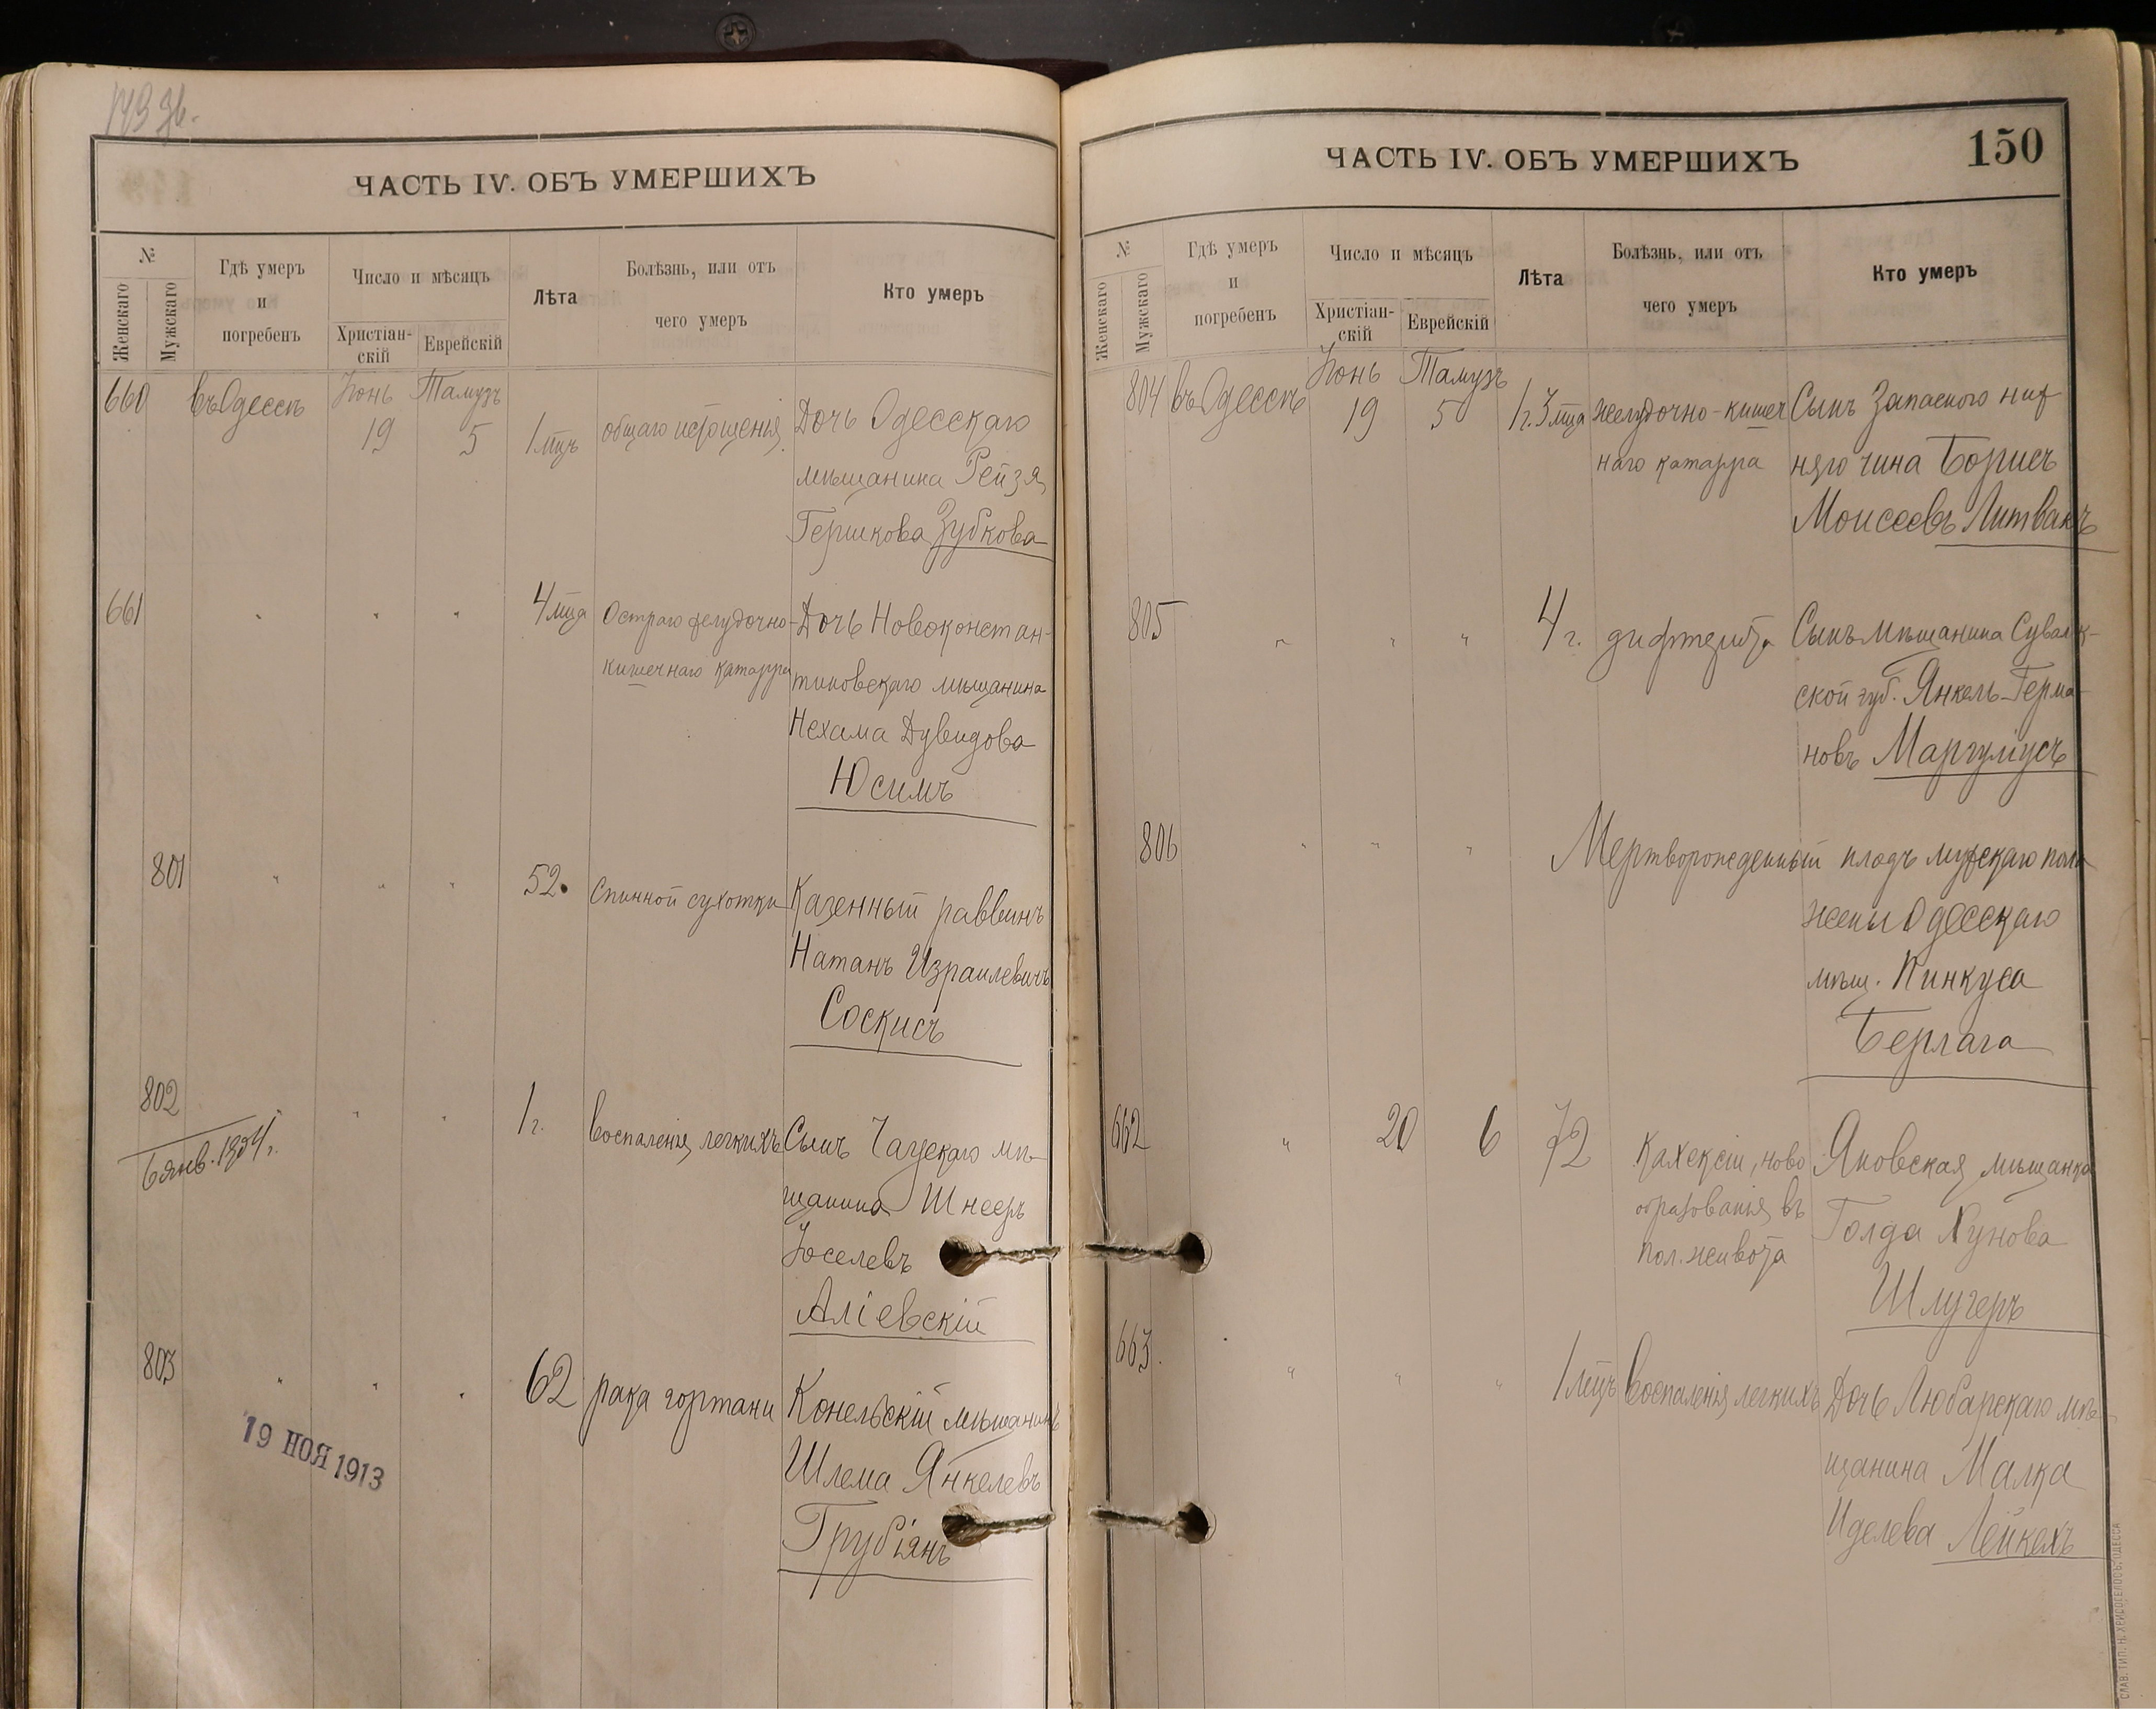 149 об.
ЧАСТЬ IV. ОБЪ УМЕРШИХЪ
№
Женскаго
Мужскаго
Гдѣ умеръ
и
погребенъ
Число и мѣсяцъ
Христіан-
скій
Еврейскій
Лѣта
Болѣзнь, или отъ
чего умеръ
Кто умеръ
660 въ Одессѣ Іюнь Тамузъ
19 5 1 мцъ общаго истощенія Дочь Одесскаго
мѣщанина Рейзя
Гершкова Зубкова
661 " " " 4 мца Остраго желудочно- Дочь Новоконстан-
кишечнаго катарра тиновскаго мѣщанина
Нехама Дувидова
Юсимъ
801 " " " 52. Спинной сухотки Казенный раввинъ
Натанъ Израилевичъ
Соскисъ
802 " " " 1 г. воспаленія легкихъ Сынъ Чаусскаго мѣ-
6 янв. 1924 г.
щанина Шнееръ
Іоселевъ
Аліевскій
803 " " " 62 рака гортани Конельскій мѣщанинъ
Шлема Янкелевъ
Грубіянъ
19 НОЯ 1913
150
ЧАСТЬ IV. ОБЪ УМЕРШИХЪ
№
Женскаго
Мужскаго
Гдѣ умеръ
и
погребенъ
Число и мѣсяцъ
Христіан-
скій
Еврейскій
Лѣта
Болѣзнь, или отъ
чего умеръ
Кто умеръ
804 въ Одессѣ Іюнь Тамузъ
19 5 1 г. 3 мца желудочно-кишеч Сынъ Запаснаго ниж
наго катарра няго чина Борисъ
Моисеевъ Литвакъ
805 " " " 4 г. дифтерита Сынъ мѣщанина Сувалк-
ской губ. Янкель-Герма-
новъ Маргуліусъ
806 " " " Мертворожденный плодъ мужскаго пола
жены Одесскаго
мѣщ. Пинкуса
Берлага
662 " 20 6 72 Кахексіи, ново Яновская мѣщанка
образованія въ Голда Хунова
пол. живота
Шлугеръ
663. " " " 1 мцъ воспаленія легкихъ Дочь Любарскаго мѣ-
щанина Малка
Иделева Лейкехъ
СЛАВ. ТИП. Н. ХРИСОГЕЛОСЪ. ОДЕССА